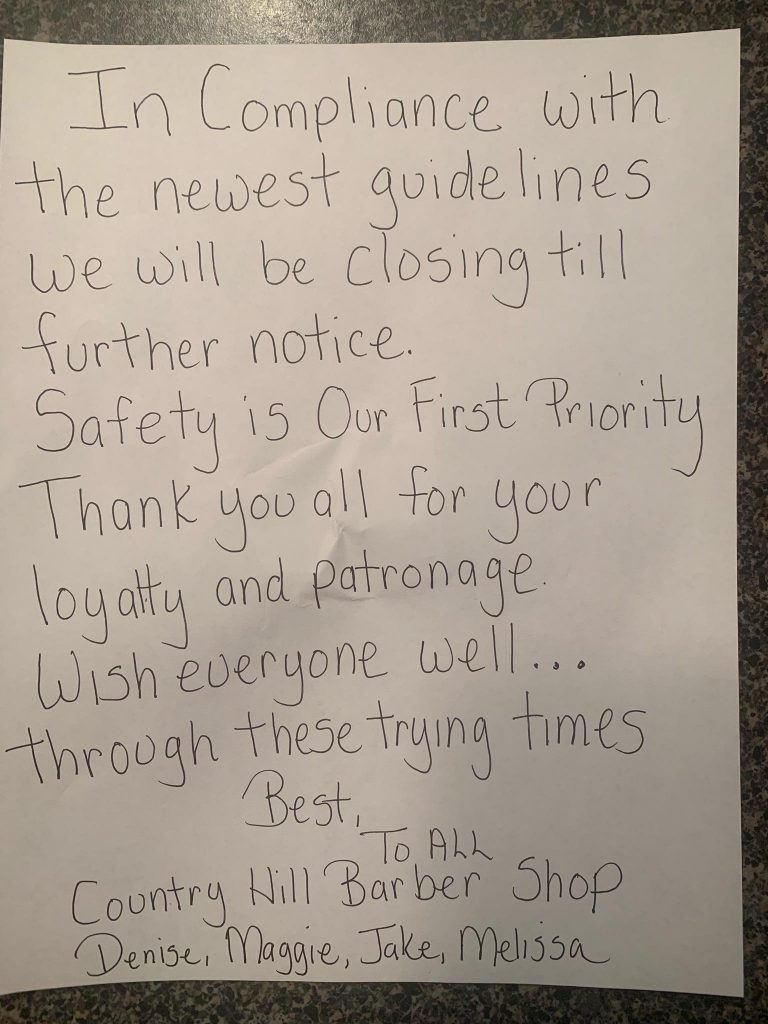 In Compliance with
the newest guidelines
we will be closing till
further notice.
Safety is Our First Priority
Thank you all for your
loyalty and patronage.
Wish everyone well...
through these trying times
Best,
To ALL
Country Hill Barber Shop
Denise, Maggie, Jake, Melissa